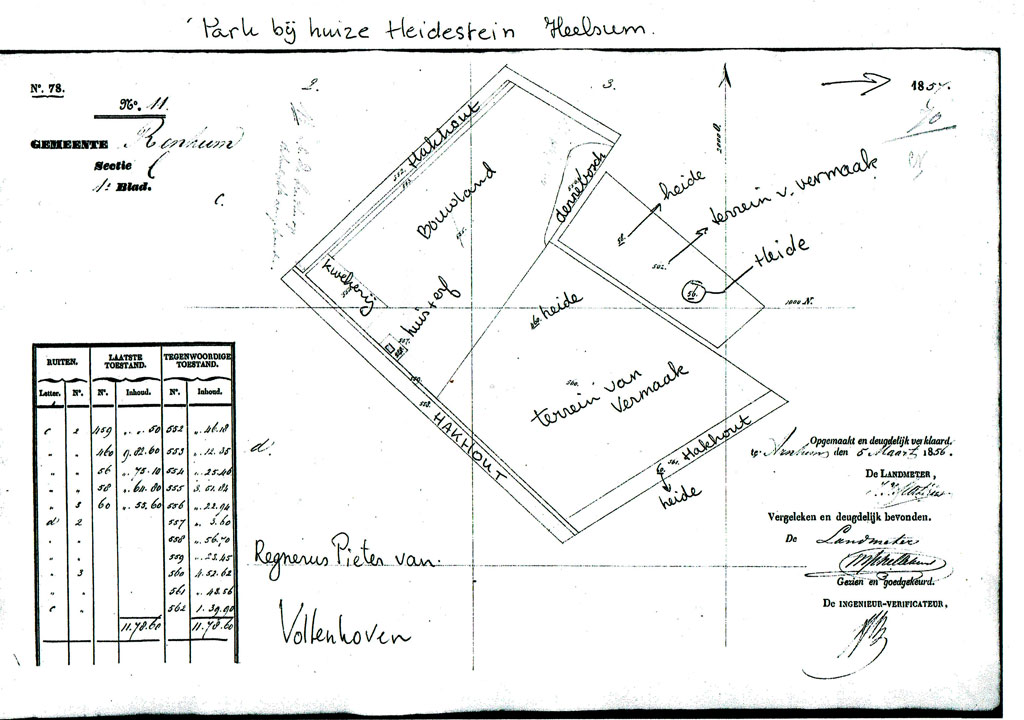 Park bij huize Heidestein Heelsum.
No. 78.
No. 11
GEMEENTE Renkum
Sectie C
1e Blad.
2.
3.
1857.
70
c.
2000 O.
1000 N.
Hakhout
552.
553.
Bouwland
555.
554
dennebosch
kwekerij
556
huis+erf
557.
558.
559.
HAKHOUT
58.
heide
562.
terrein v. vermaak
56.
Heide
460.
heide
560.
terrein van
vermaak
60.
561.
Hakhout
heide
d.
RUITEN. LAATSTE TOESTAND. TEGENWOORDIGE TOESTAND.
Letter. No. No. Inhoud. No. Inhoud.
c 2 459 „ „ 50 552 „ 46.18
„ „ 460 9.82.60 553 „ 12.35
„ „ 56 „ 75.10 554 „ 25.46
„ „ 58 „ 64.80 555 3.51.84
„ 3 60 „ 55.60 556 „ 22.94
d 2 557 „ 3.60
„ „ 558 „ 56.70
„ „ 559 „ 23.45
„ 3 560 4.52.62
„ „ 561 „ 43.56
c „ 562 1.39.90
11.78.60 11.78.60
Regnerus Pieter van.
Voltenhoven
Opgemaakt en deugdelijk verklaard.
te Arnhem den 5 Maart 1856.
De LANDMETER,
Vergeleken en deugdelijk bevonden.
De Landmeter
Gezien en goedgekeurd.
De INGENIEUR-VERIFICATEUR,